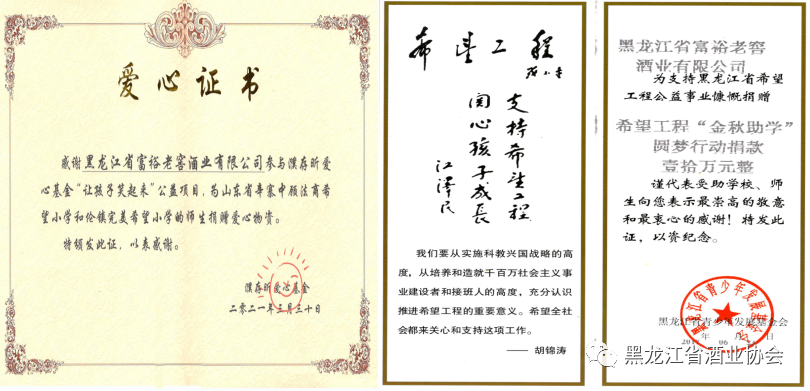 爱心证书
感谢黑龙江省富裕老窖酒业有限公司参与濮存昕爱
心基金“让孩子笑起来”公益项目，为山东省辛寨中顾法商希
望小学和伦镇完美希望小学的师生捐赠爱心物资。
特颁发此证，以表感谢。
濮存昕爱心基金
二〇二一年三月三十日
希望工程
支持希望工程
关心孩子成长
江泽民
我们要从实施科教兴国战略的高
度，从培养和造就千百万社会主义事
业建设者和接班人的高度，充分认识
推进希望工程的重要意义。希望全社
会都来关心和支持这项工作。
——胡锦涛
黑龙江省富裕老窖
酒业有限公司
为支持黑龙江省希望
工程公益事业慷慨捐赠
希望工程“金秋助学”
圆梦行动捐款
壹拾万元整
谨代表受助学校、师
生向您表示最崇高的敬意
和最衷心的感谢！特发此
证，以资纪念。
黑龙江省青少年发展基金会
黑龙江省酒业协会